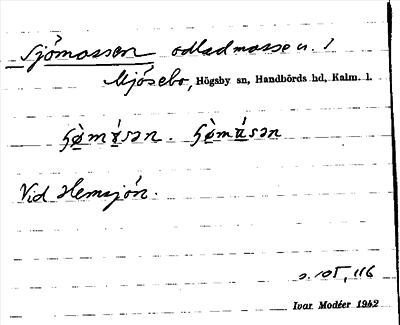 Sjömossen odlad mosse u. 1
Mjösebo, Högsby sn, Handbörds hd, Kalm. l.
Vid Hemsjön.
s. 105, 116
Ivar Modéer 1942